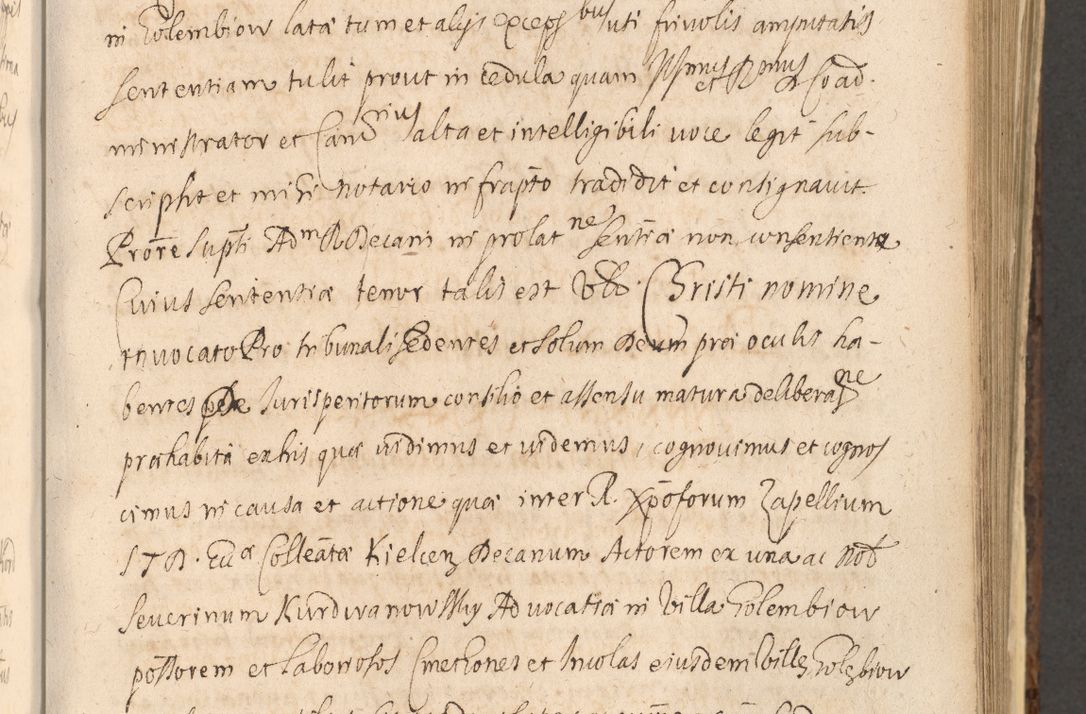 in Golembiow latae tum et alijs excepbus uti friuolis amputatis
sententiam tulit prout in cedula quam Illsmus et Rmus D Coad-
ministrator et Canrius alta et intelligibili uoce legit sub-
scripsit et mihi notario infrapto tradidit et consignauit.
Prore supti Adm R Decani in prolatne sentiae non consentiente
Cuius sententiae tenor talis est Vdlt. Christi nomine
inuocato Pro tribunali sedentes et solum Deum prae oculis ha-
bentes de Iurisperitorum consilio et assensu matura deliberane
praehabita ex his quae uidimus et uidemus, cognouimus et cognos
cimus in causa et actione quae inter R. Xpoforum Zapellium
S T D. Eccae Colleatae Kielcen Decanum Actorem ex una ac Nob
Seuerinum Kurdwanowsky Aduocatiae in Villa Golembiow
possorem et Laboriosos Cmethones et Incolas eiusdem Villae Golebiow